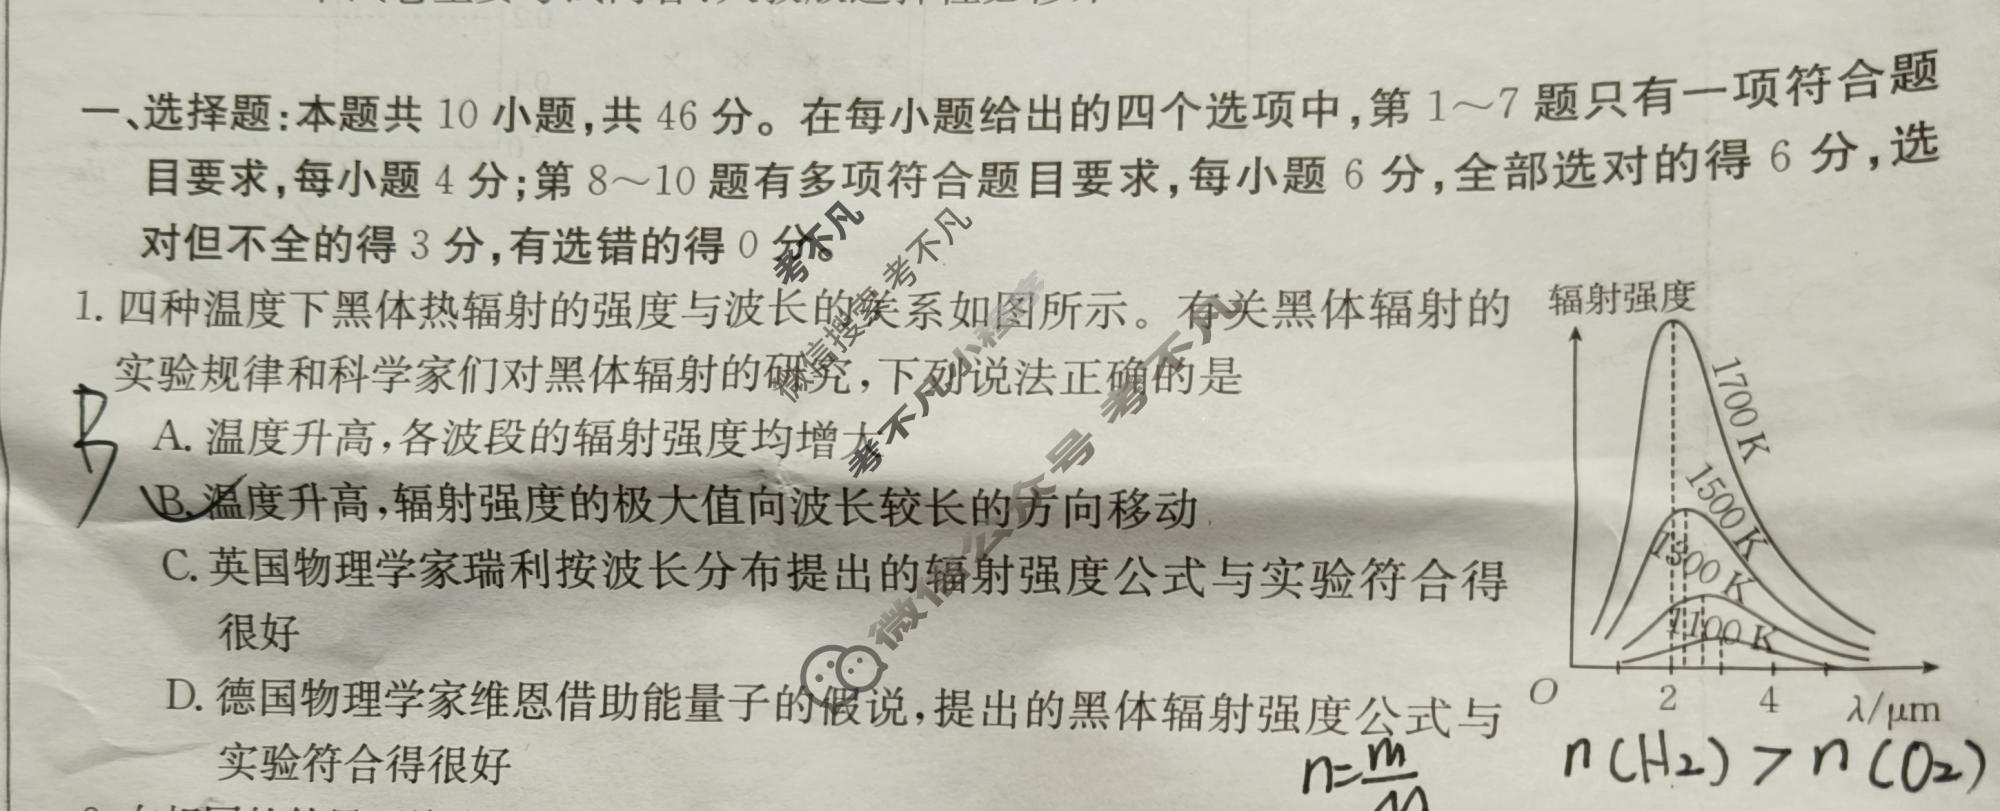 一、选择题:本题共 10 小题,共 46 分。在每小题给出的四个选项中,第 1～7 题只有一项符合题
目要求,每小题 4 分;第 8～10 题有多项符合题目要求,每小题 6 分,全部选对的得 6 分,选
对但不全的得 3 分,有选错的得 0 分。
1. 四种温度下黑体热辐射的强度与波长的关系如图所示。有关黑体辐射的
实验规律和科学家们对黑体辐射的研究,下列说法正确的是
B
A. 温度升高,各波段的辐射强度均增大
B. 温度升高,辐射强度的极大值向波长较长的方向移动
C. 英国物理学家瑞利按波长分布提出的辐射强度公式与实验符合得
很好
D. 德国物理学家维恩借助能量子的假说,提出的黑体辐射强度公式与
实验符合得很好
辐射强度
1700 K
1500 K
1300 K
1100 K
O 2 4 λ/μm
n=m/M
n(H₂) > n(O₂)
考不凡
微信搜索 考不凡
考不凡小程序
微信公众号 考不凡